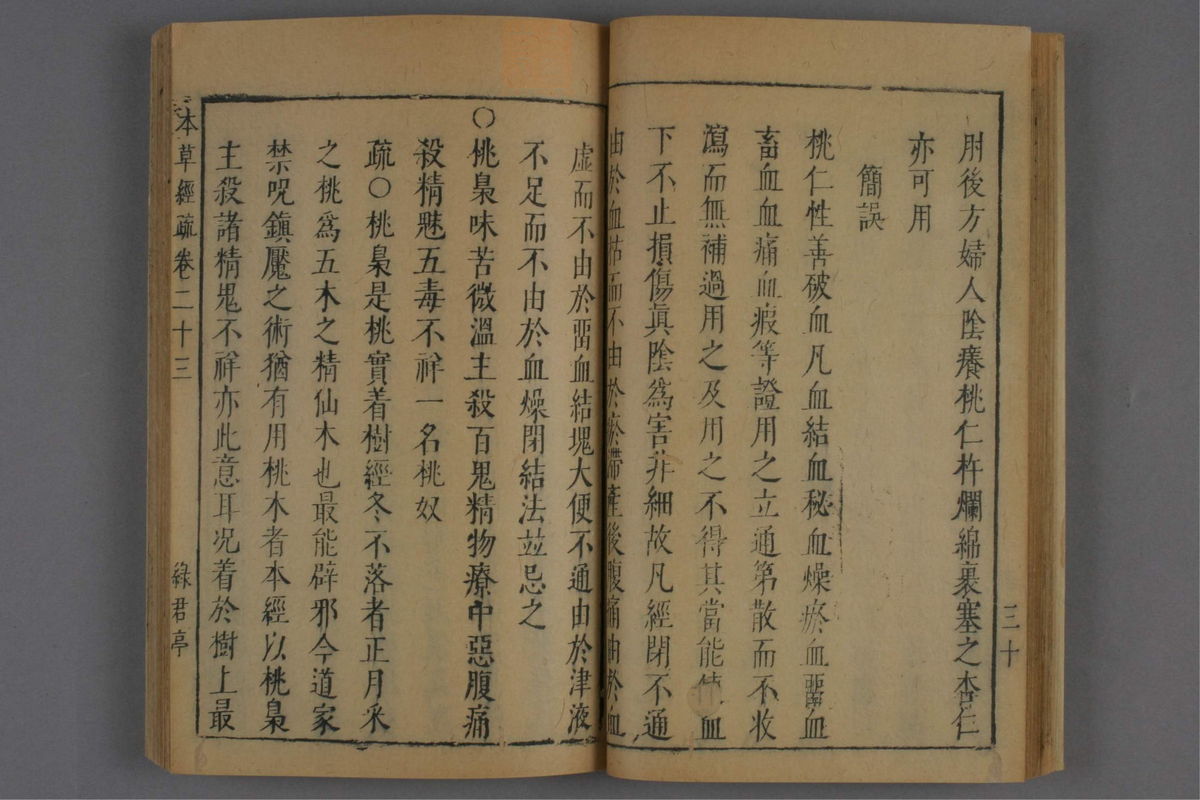 三十
肘後方婦人陰癢桃仁杵爛綿裹塞之杏仁
亦可用
簡誤
桃仁性善破血凡血結血秘血燥瘀血畱血
畜血血痛血瘕等證用之立通第散而不收
瀉而無補過用之及用之不得其當能使血
下不止損傷眞陰為害非細故凡經閉不通
由於血枯而不由於瘀滯產後腹痛由於血
虛而不由於畱血結塊大便不通由於津液
不足而不由於血燥閉結法並忌之
○桃梟味苦微溫主殺百鬼精物療中惡腹痛
殺精魅五毒不祥一名桃奴
疏○桃梟是桃實着樹經冬不落者正月采
之桃爲五木之精仙木也最能辟邪今道家
禁呪鎮魘之術猶有用桃木者本經以桃梟
主殺諸精鬼不祥亦此意耳况着於樹上最
本草經疏 卷二十三 綠君亭